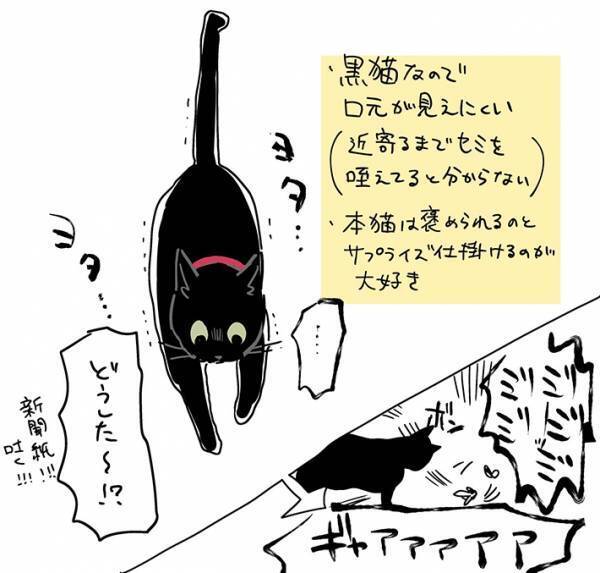 ・黒猫なので
口元が見えにくい
(近寄るまでセミを
咥えてると分からない)
・本猫は褒められるのと
サプライズ仕掛けるのが
大好き
ヨタ…
ヨタ…
……
どうした〜!?
新聞紙!!
吐く!!!
ボン
ジジジジ
ジジジジ
ギャアァァアア